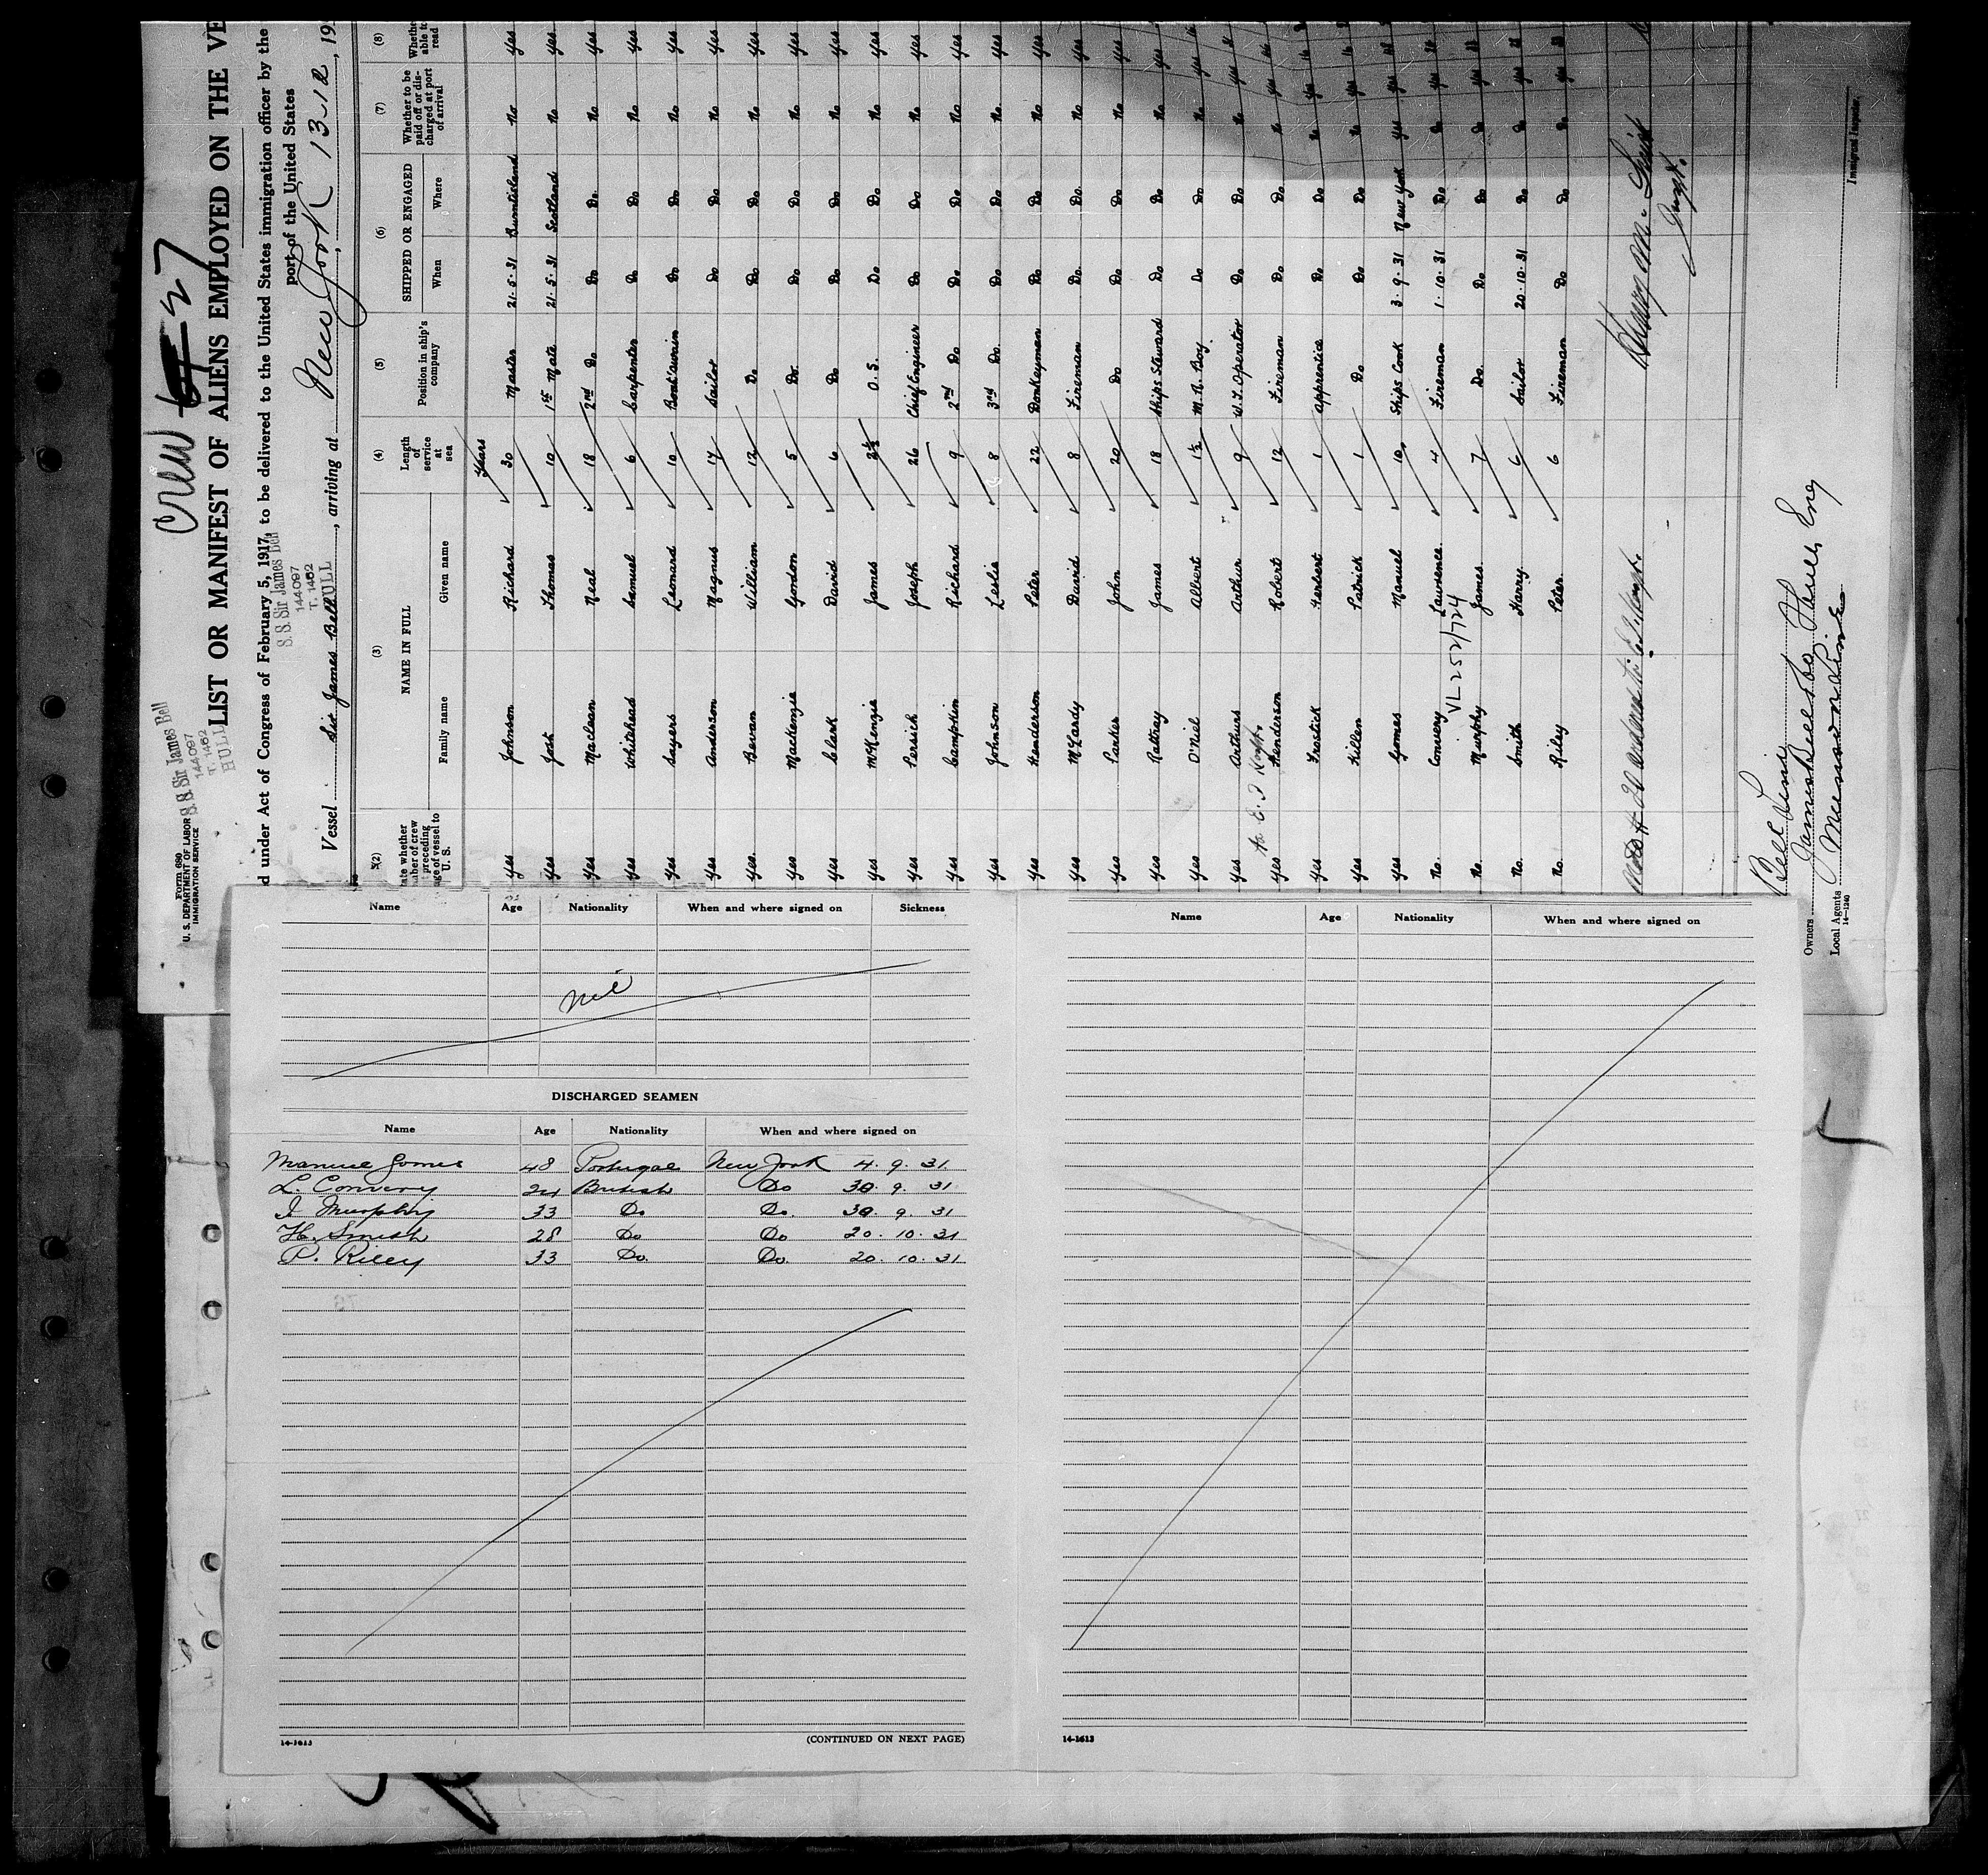 Crew 27
Form 680
U. S. DEPARTMENT OF LABOR
IMMIGRATION SERVICE
S.S. Sir James Bell
144097
T. 1482
HULL
LIST OR MANIFEST OF ALIENS EMPLOYED ON THE VE
d under Act of Congress of February 5, 1917, to be delivered to the United States immigration officer by the
port of the United States
S.S. Sir James Bell
144097
T. 1482
HULL
Vessel Sir James Bell, arriving at New York 13-12, 19
(2) (3) (4) (5) (6) (7) (8)
NAME IN FULL
Family name Given name
Length of service at sea
Position in ship's company
SHIPPED OR ENGAGED
When Where
Whether to be paid off or discharged at port of arrival
Years
yes Johnson Richard 30 Master 21.5.31 Burntisland no yes
yes Thomas 10 1st Mate 21.5.31 Scotland no yes
yes Maclean Neal 18 2nd Do Do Do no yes
yes Whitehead Samuel 6 Carpenter Do Do no yes
yes Sayers Leonard 10 Do Do no yes
yes Anderson Magnus 17 Sailor Do Do no yes
yes. Bevan William 12 Do Do Do no yes
yes Mackenzie Gordon 5 Do Do Do no yes
yes Clark David 6 Do Do Do no yes
yes McKenzie James 2½ O.S. Do Do no yes
yes Persich Joseph 26 Chief Engineer Do Do no yes
yes Campkin Richard 9 2nd Do Do Do no yes
yes Johnson Leslie 8 3rd Do Do Do no yes
yes Henderson Peter 22 Donkeyman Do Do no yes
yes McLardy David 8 Fireman Do Do no yes
yes Parker John 20 Do Do Do no yes
yes Rattray James 18 Ships Steward Do Do no yes
yes O'Niel Albert 1½ M.R. Boy Do Do no yes
yes Arthurs Arthur 9 W.T. Operator Do Do no yes
yes Henderson Robert 12 Fireman Do Do no yes
yes Frostick Herbert 1 Apprentice Do Do no yes
yes Killen Patrick 1 Do Do Do no yes
yes Gomes Manuel 10 Ships Cook 3.9.31 New York yes yes
no. Convery Lawrence 4 Fireman 1.10.31 Do Do yes
VL 252/724
no. Murphy James 7 Do Do Do Do yes
no. Smith Harry 6 Sailor 20.10.31 Do Do yes
no. Riley Peter 6 Fireman Do Do Do yes
Bell Line
Owners James Bell & Co Hull Eng
Local Agents Munson Line
14—1240
Immigrant Inspector.
Name Age Nationality When and where signed on Sickness
nil
DISCHARGED SEAMEN
Name Age Nationality When and where signed on
Manuel Gomes 48 Portugal New York 4. 9. 31
L. Convery 24 British Do 30 9. 31
J Murphy 33 Do Do. 30. 9. 31
H. Smith 28 Do Do 20. 10. 31
P. Riley 33 Do. Do. 20. 10. 31
14-1613 (CONTINUED ON NEXT PAGE)
Name Age Nationality When and where signed on
14-1613